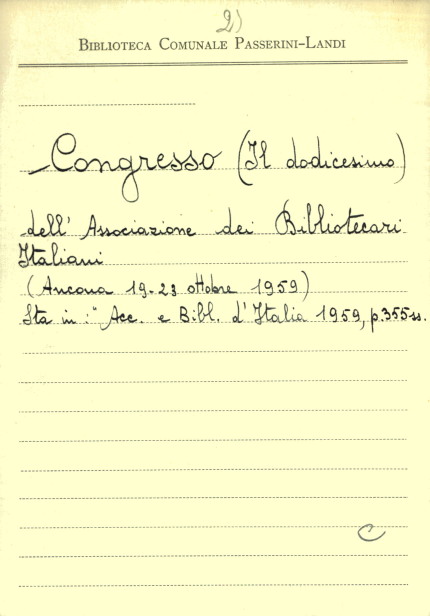 2)
BIBLIOTECA COMUNALE PASSERINI-LANDI
Congresso (Il dodicesimo)
dell' Associazione dei Bibliotecari
Italiani
(Ancona 19-23 ottobre 1959)
Sta in: "Acc. e Bibl. d'Italia 1959, p.355ss.
C